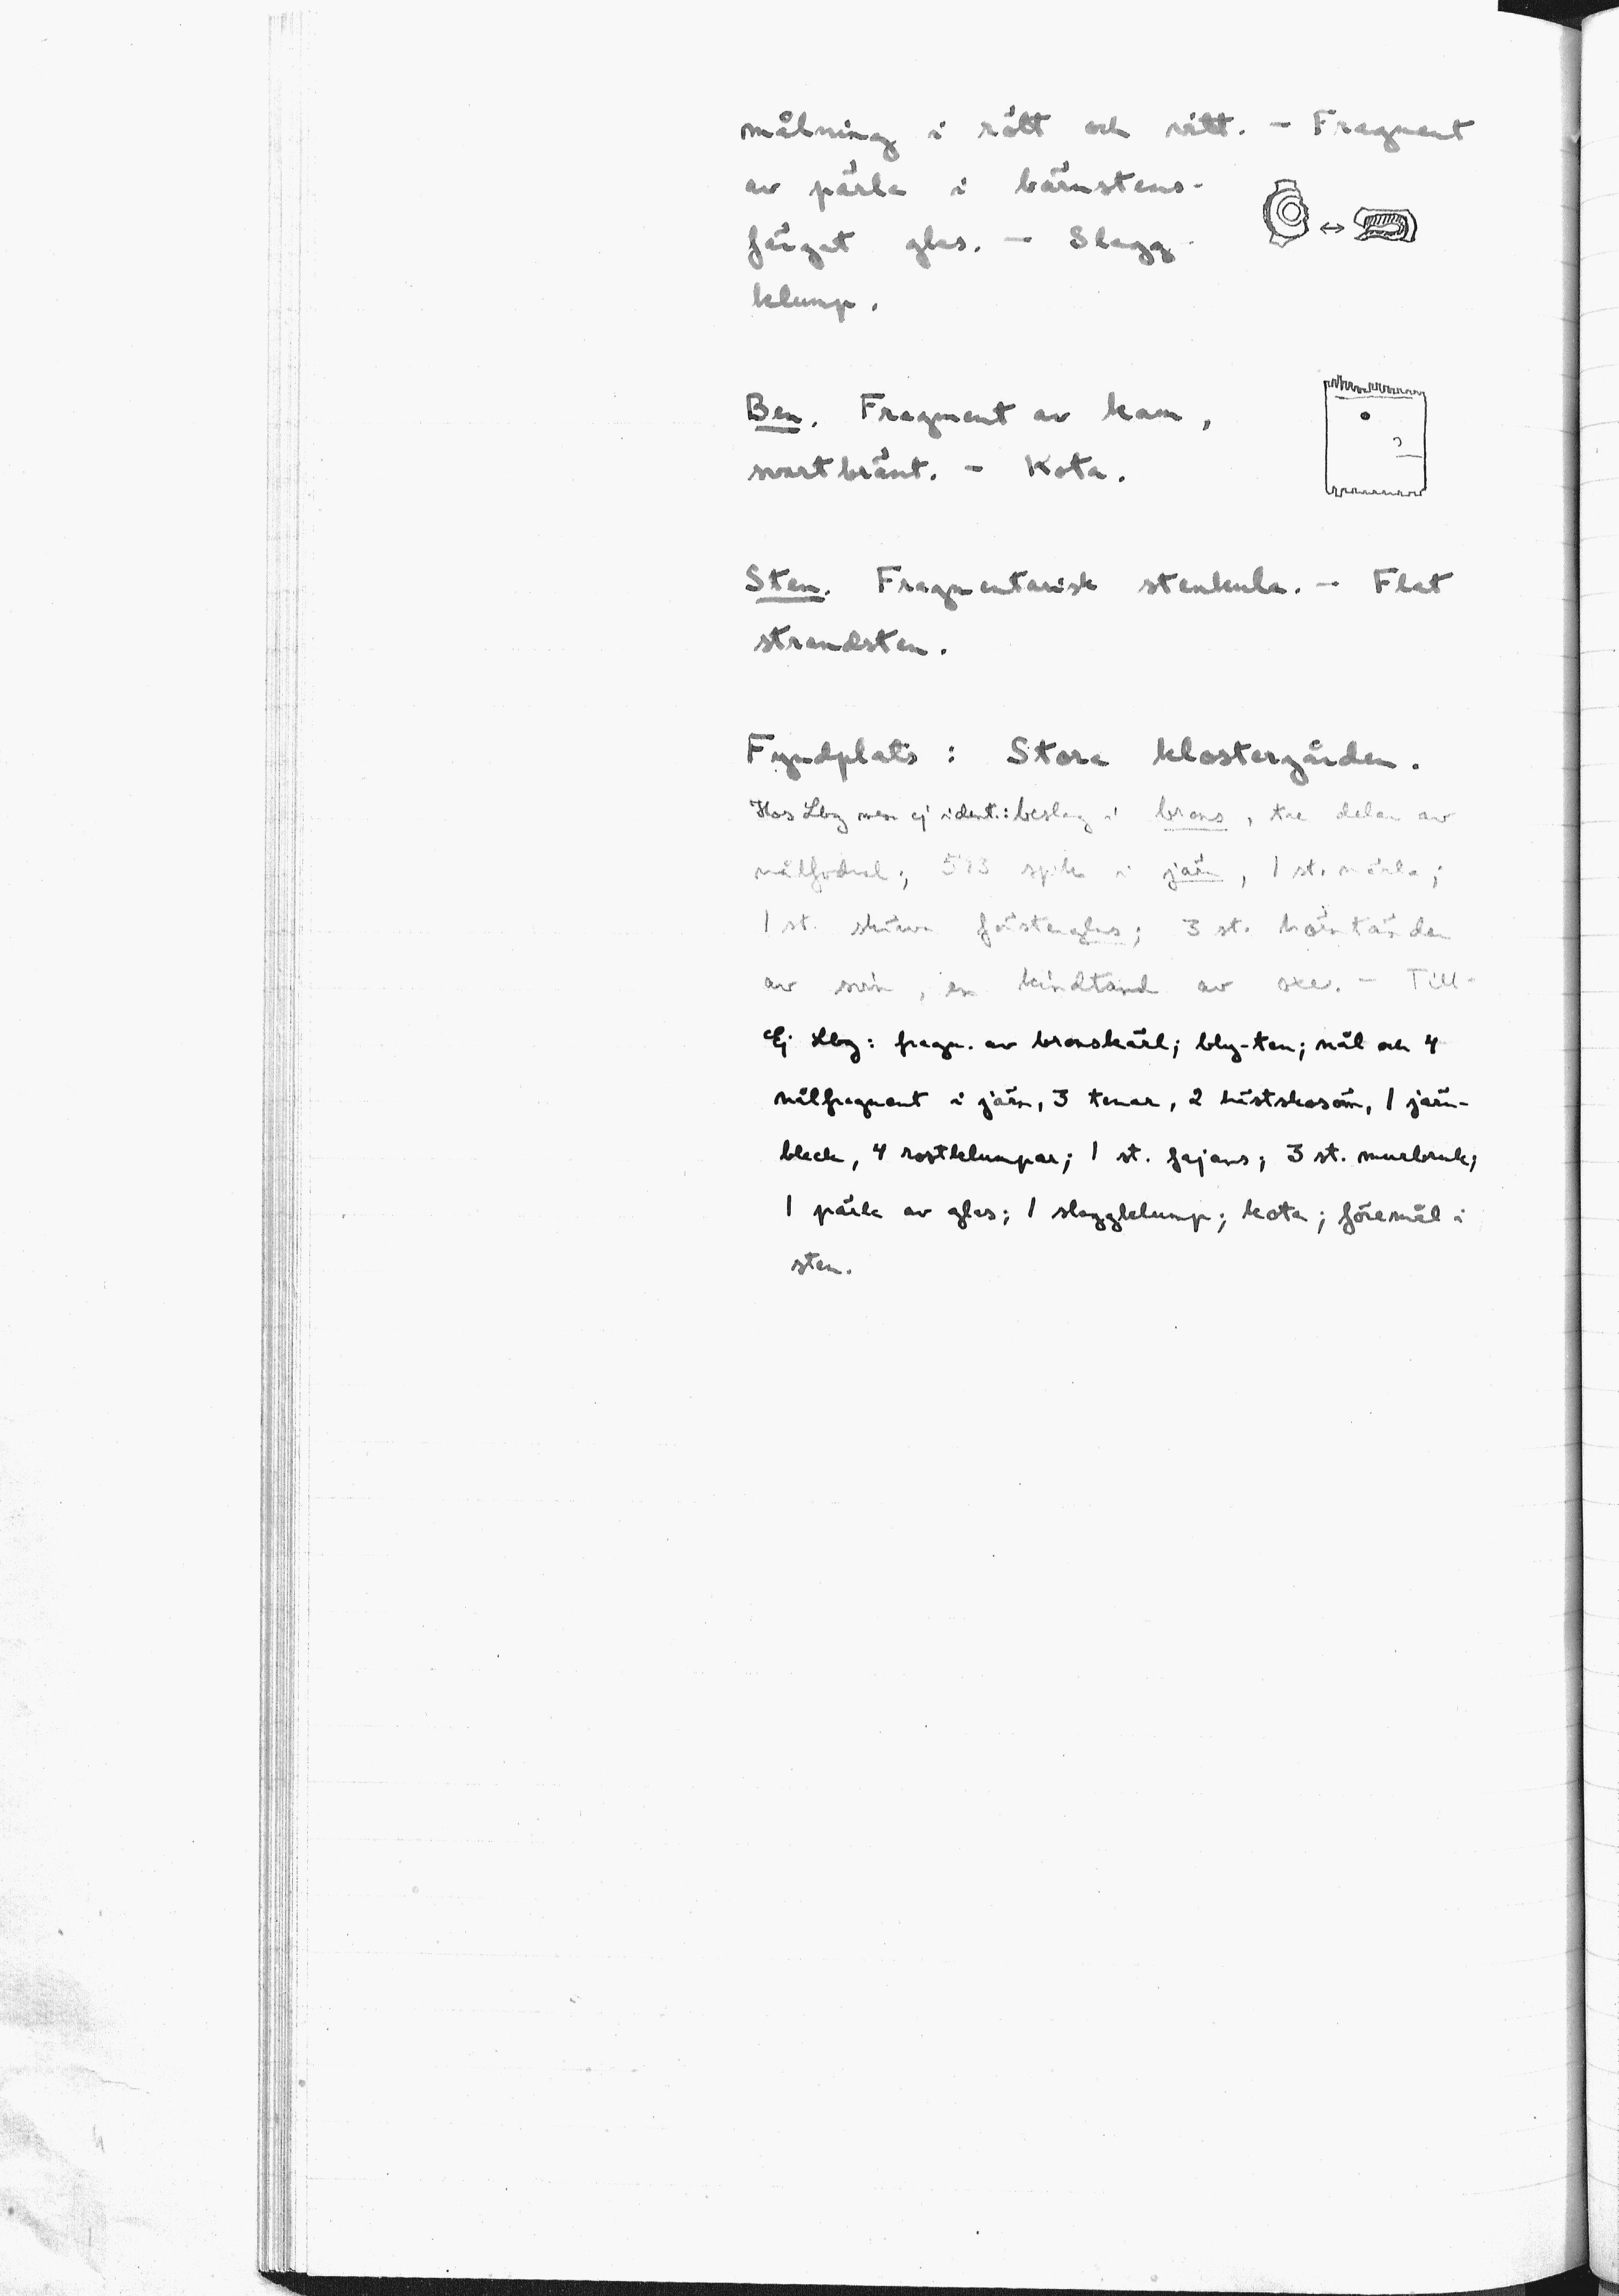 målning i rött och vitt. – Fragment
av pärla i bärnstens-
färgat glas. – Slagg-
klump.
Ben. Fragment av kam,
svartbränt. – Kota.
Sten. Fragmentarisk stenkula. – Flat
strandsten.
Fyndplats: Stora klostergården.
Hos Lbg men ej ident.: beslag i brons, tre delar av
nålfodral; 593 spik i järn, 1 st. märla;
1 st. skärva fönsterglas; 3 st. hörntänder
av svin, en kindtand av oxe. – Till-
Ej Lbg: fragm. av bronskärl; bly-ten; nål och 4
nålfragment i järn, 3 tenar, 2 hästskosöm, 1 järn-
bleck, 4 rostklumpar; 1 st. fajans; 3 st. murbruk;
1 pärla av glas; 1 slaggklump; kota; föremål i
sten.